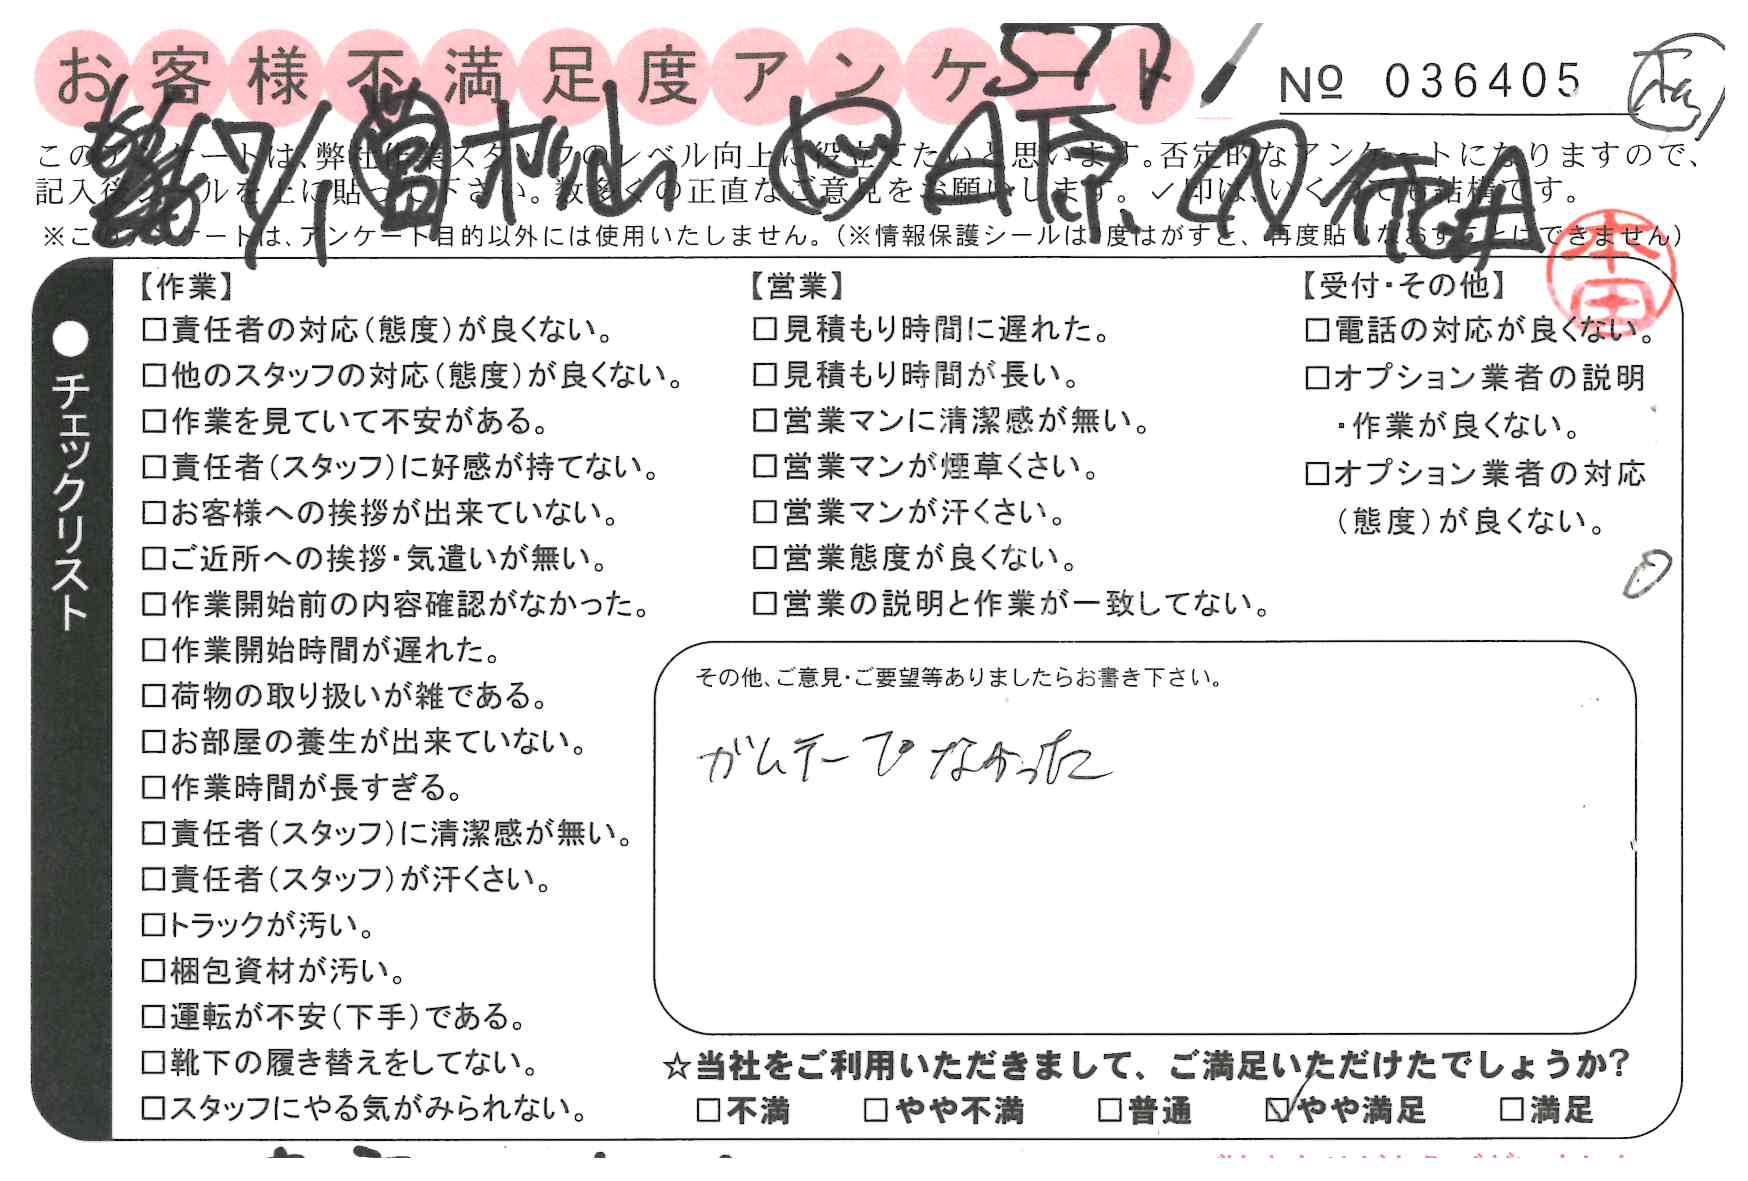 お客様不満足度アンケート
№ 036405
このアンケートは、弊社作業スタッフのレベル向上に役立てたいと思います。否定的なアンケートになりますので、
記入後シールを上に貼って下さい。数多くの正直なご意見をお願いします。✓印は、いくつでも結構です。
※このアンケートは、アンケート目的以外には使用いたしません。(※情報保護シールは1度はがすと、再度貼りなおすことはできません)
本田
●チェックリスト
【作業】
□責任者の対応(態度)が良くない。
□他のスタッフの対応(態度)が良くない。
□作業を見ていて不安がある。
□責任者(スタッフ)に好感が持てない。
□お客様への挨拶が出来ていない。
□ご近所への挨拶・気遣いが無い。
□作業開始前の内容確認がなかった。
□作業開始時間が遅れた。
□荷物の取り扱いが雑である。
□お部屋の養生が出来ていない。
□作業時間が長すぎる。
□責任者(スタッフ)に清潔感が無い。
□責任者(スタッフ)が汗くさい。
□トラックが汚い。
□梱包資材が汚い。
□運転が不安(下手)である。
□靴下の履き替えをしてない。
□スタッフにやる気がみられない。
【営業】
□見積もり時間に遅れた。
□見積もり時間が長い。
□営業マンに清潔感が無い。
□営業マンが煙草くさい。
□営業マンが汗くさい。
□営業態度が良くない。
□営業の説明と作業が一致してない。
【受付・その他】
□電話の対応が良くない。
□オプション業者の説明
・作業が良くない。
□オプション業者の対応
(態度)が良くない。
その他、ご意見・ご要望等ありましたらお書き下さい。
ガムテープなかった
☆当社をご利用いただきまして、ご満足いただけたでしょうか?
□不満 □やや不満 □普通 ☑やや満足 □満足